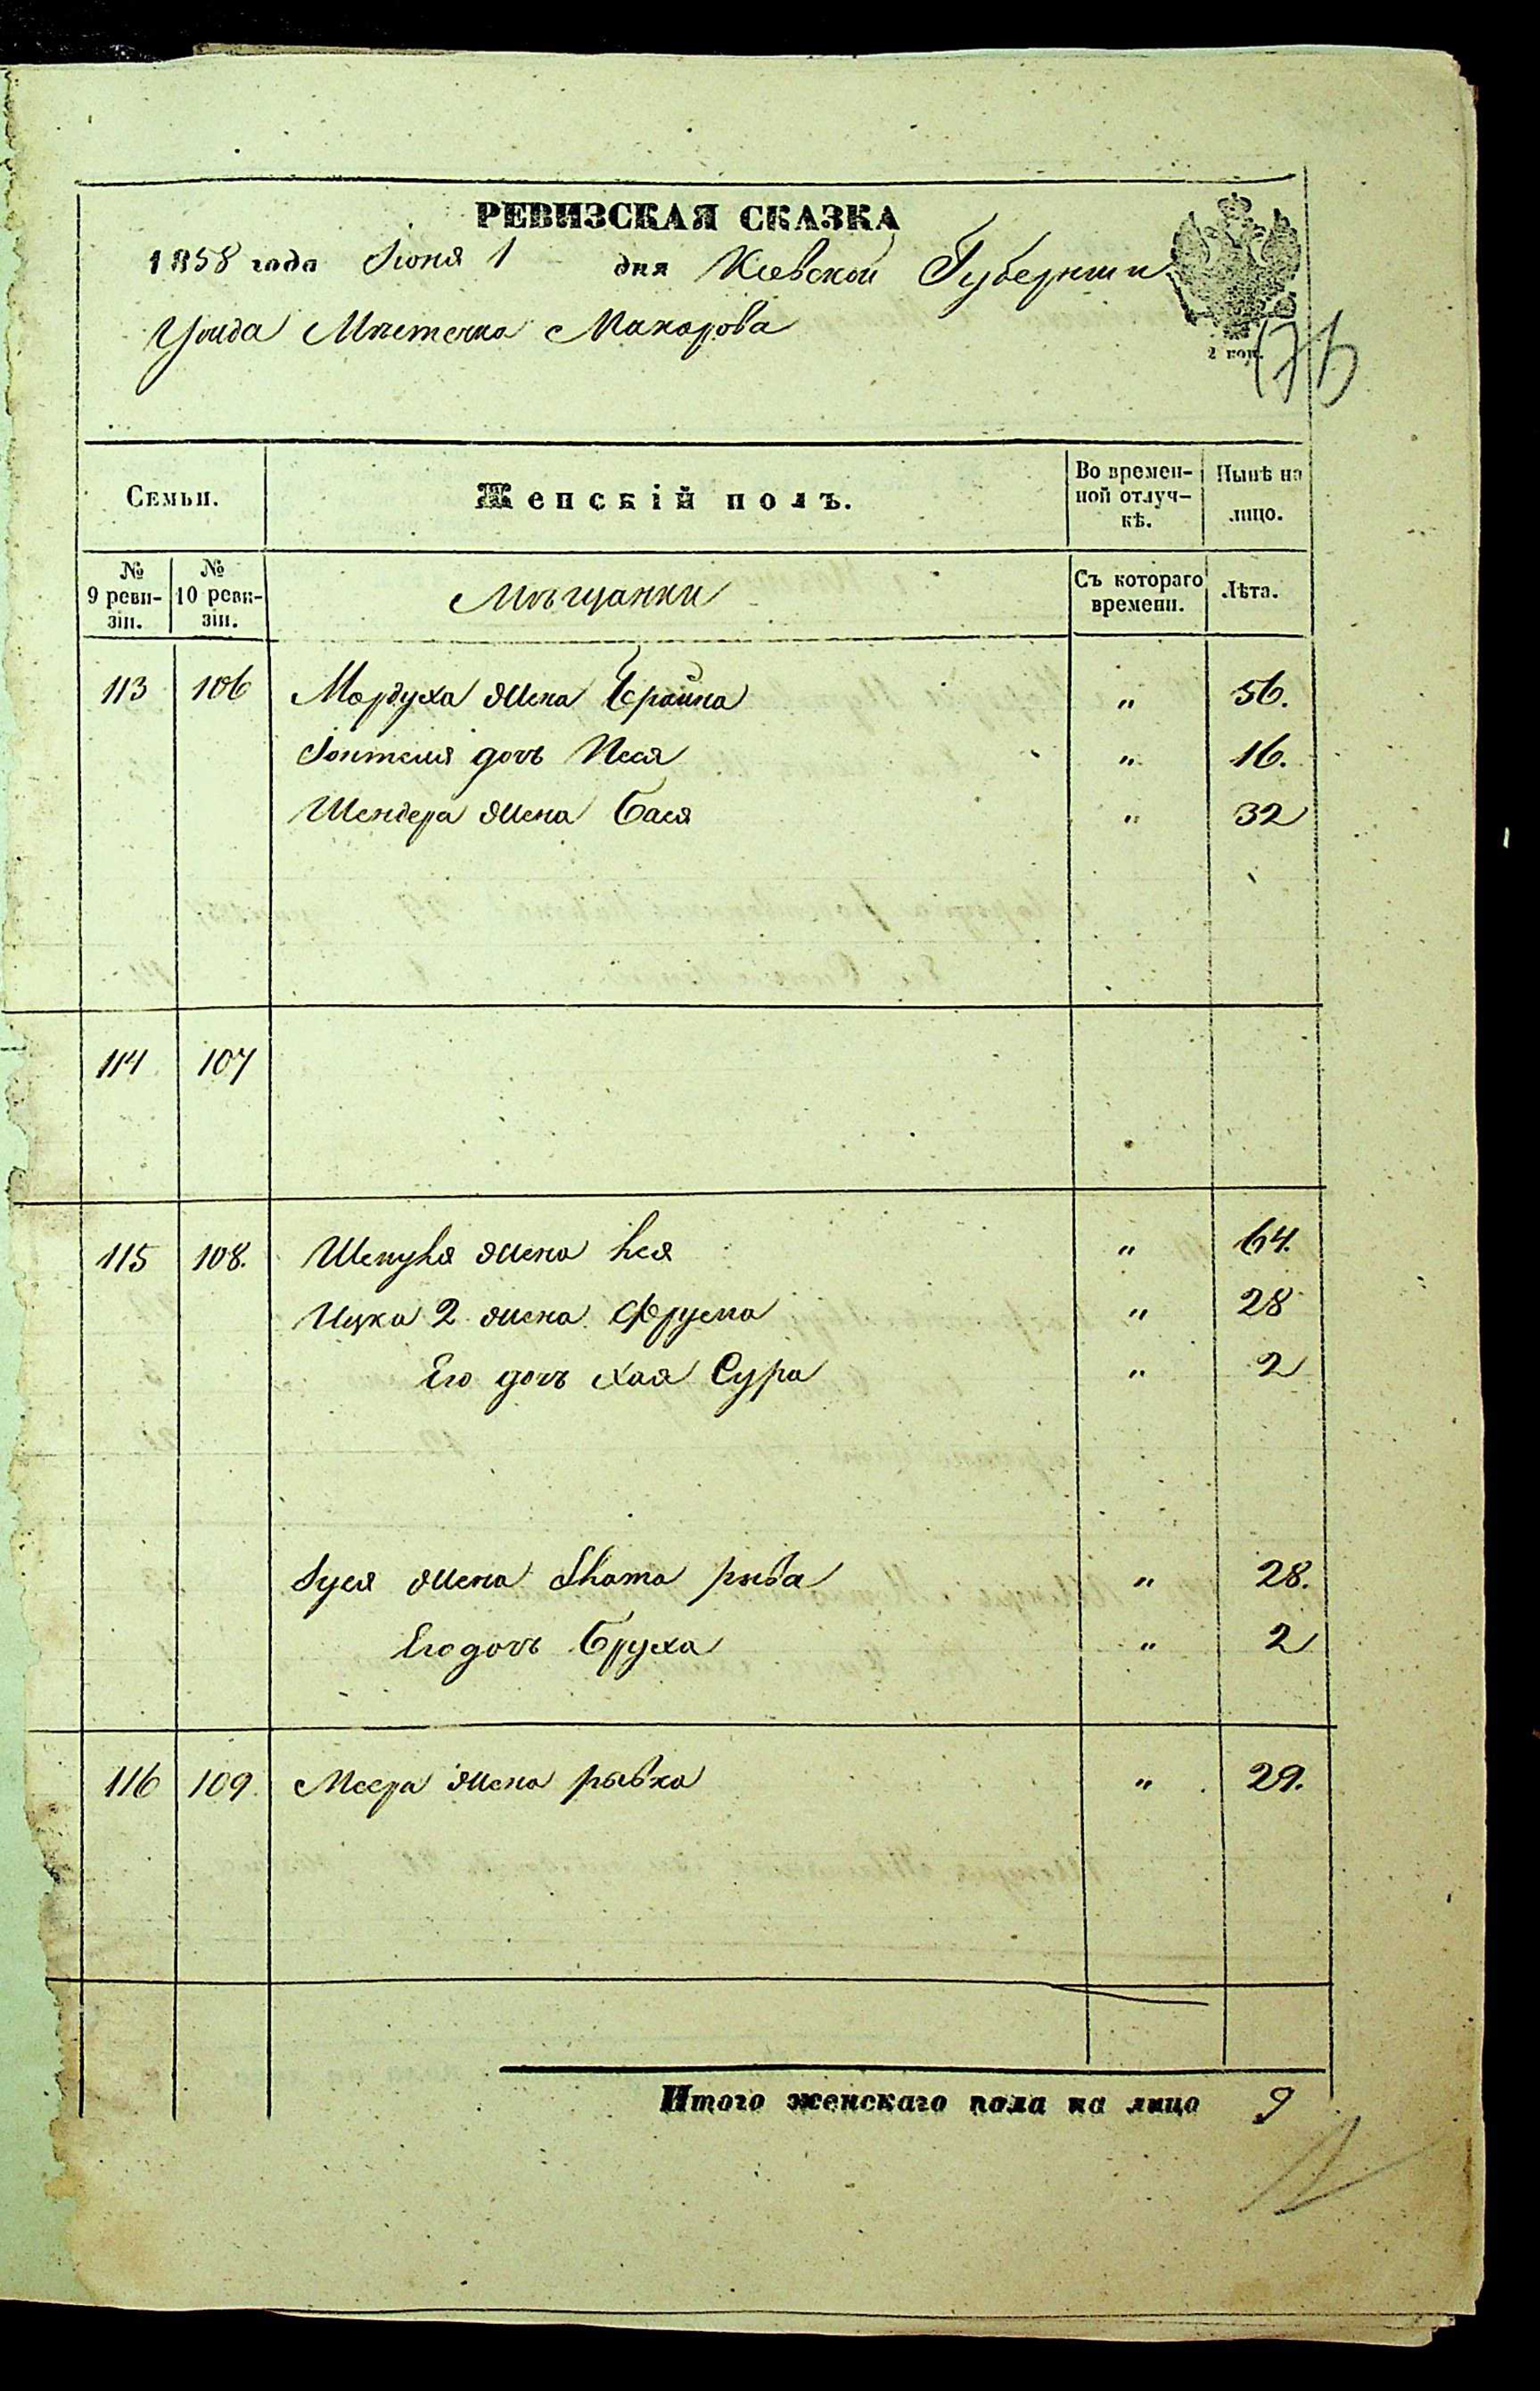 РЕВИЗСКАЯ СКАЗКА
1858 года Іюня 1 дня Кіевской Губерніи
Уѣзда Мѣстечка Макарова
2 коп.
Семьи.
Женскій полъ.
Во времен-
ной отлуч-
кѣ.
Нынѣ на
лицо.
№
9 реви-
зіи.
№
10 реви-
зіи.
Мѣщанки
Съ котораго
времени.
Лѣта.
113 106 Мордуха жена Брайна " 56.
дочь Песя " 16.
Шендера жена Бася " 32
114 107
115 108. жена " 64.
Ицка 2 жена Фрума " 28
Его дочь Хая Сура " 2
жена " 28.
Его дочь Бруха " 2
116 109. Меера жена рывка " 29.
Итого женскаго пола на лицо 9